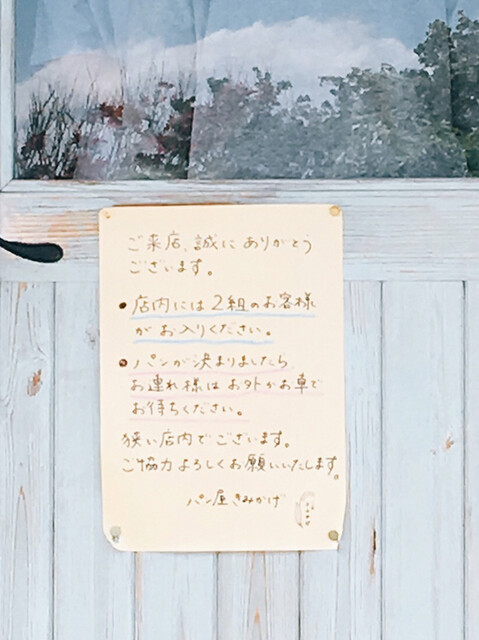 ご来店、誠にありがとう
ございます。
● 店内には2組のお客様
がお入りください。
● パンが決まりましたら、
お連れ様はお外かお車で
お待ちください。
狭い店内でございます。
ご協力よろしくお願いいたします。
パン屋きみかげ